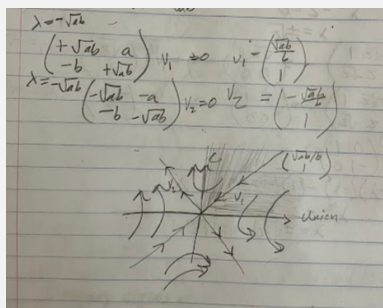 λ=-√ab
(+√ab a
-b +√ab) V₁ =0 V₁ = (√ab/b
1)
λ=-√ab
(-√ab -a
-b -√ab) V₂=0 V₂ = (-√ab/b
1)
C
(√ab/b
1)
V₂ V₁
Union